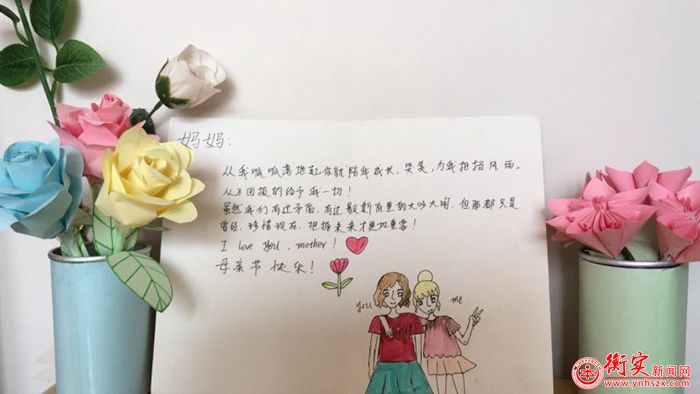 妈妈：
从我呱呱落地起你就陪我成长，哭笑，为我抵挡风雨。
从不回报的给予我一切！
虽然我们有过矛盾，有过 的大吵大闹，但那都只是
曾经，珍惜现在，把握未来才更加重要！
I love you, mother!
母亲节快乐！
you
me
衡实新闻网
www.ynhszx.com